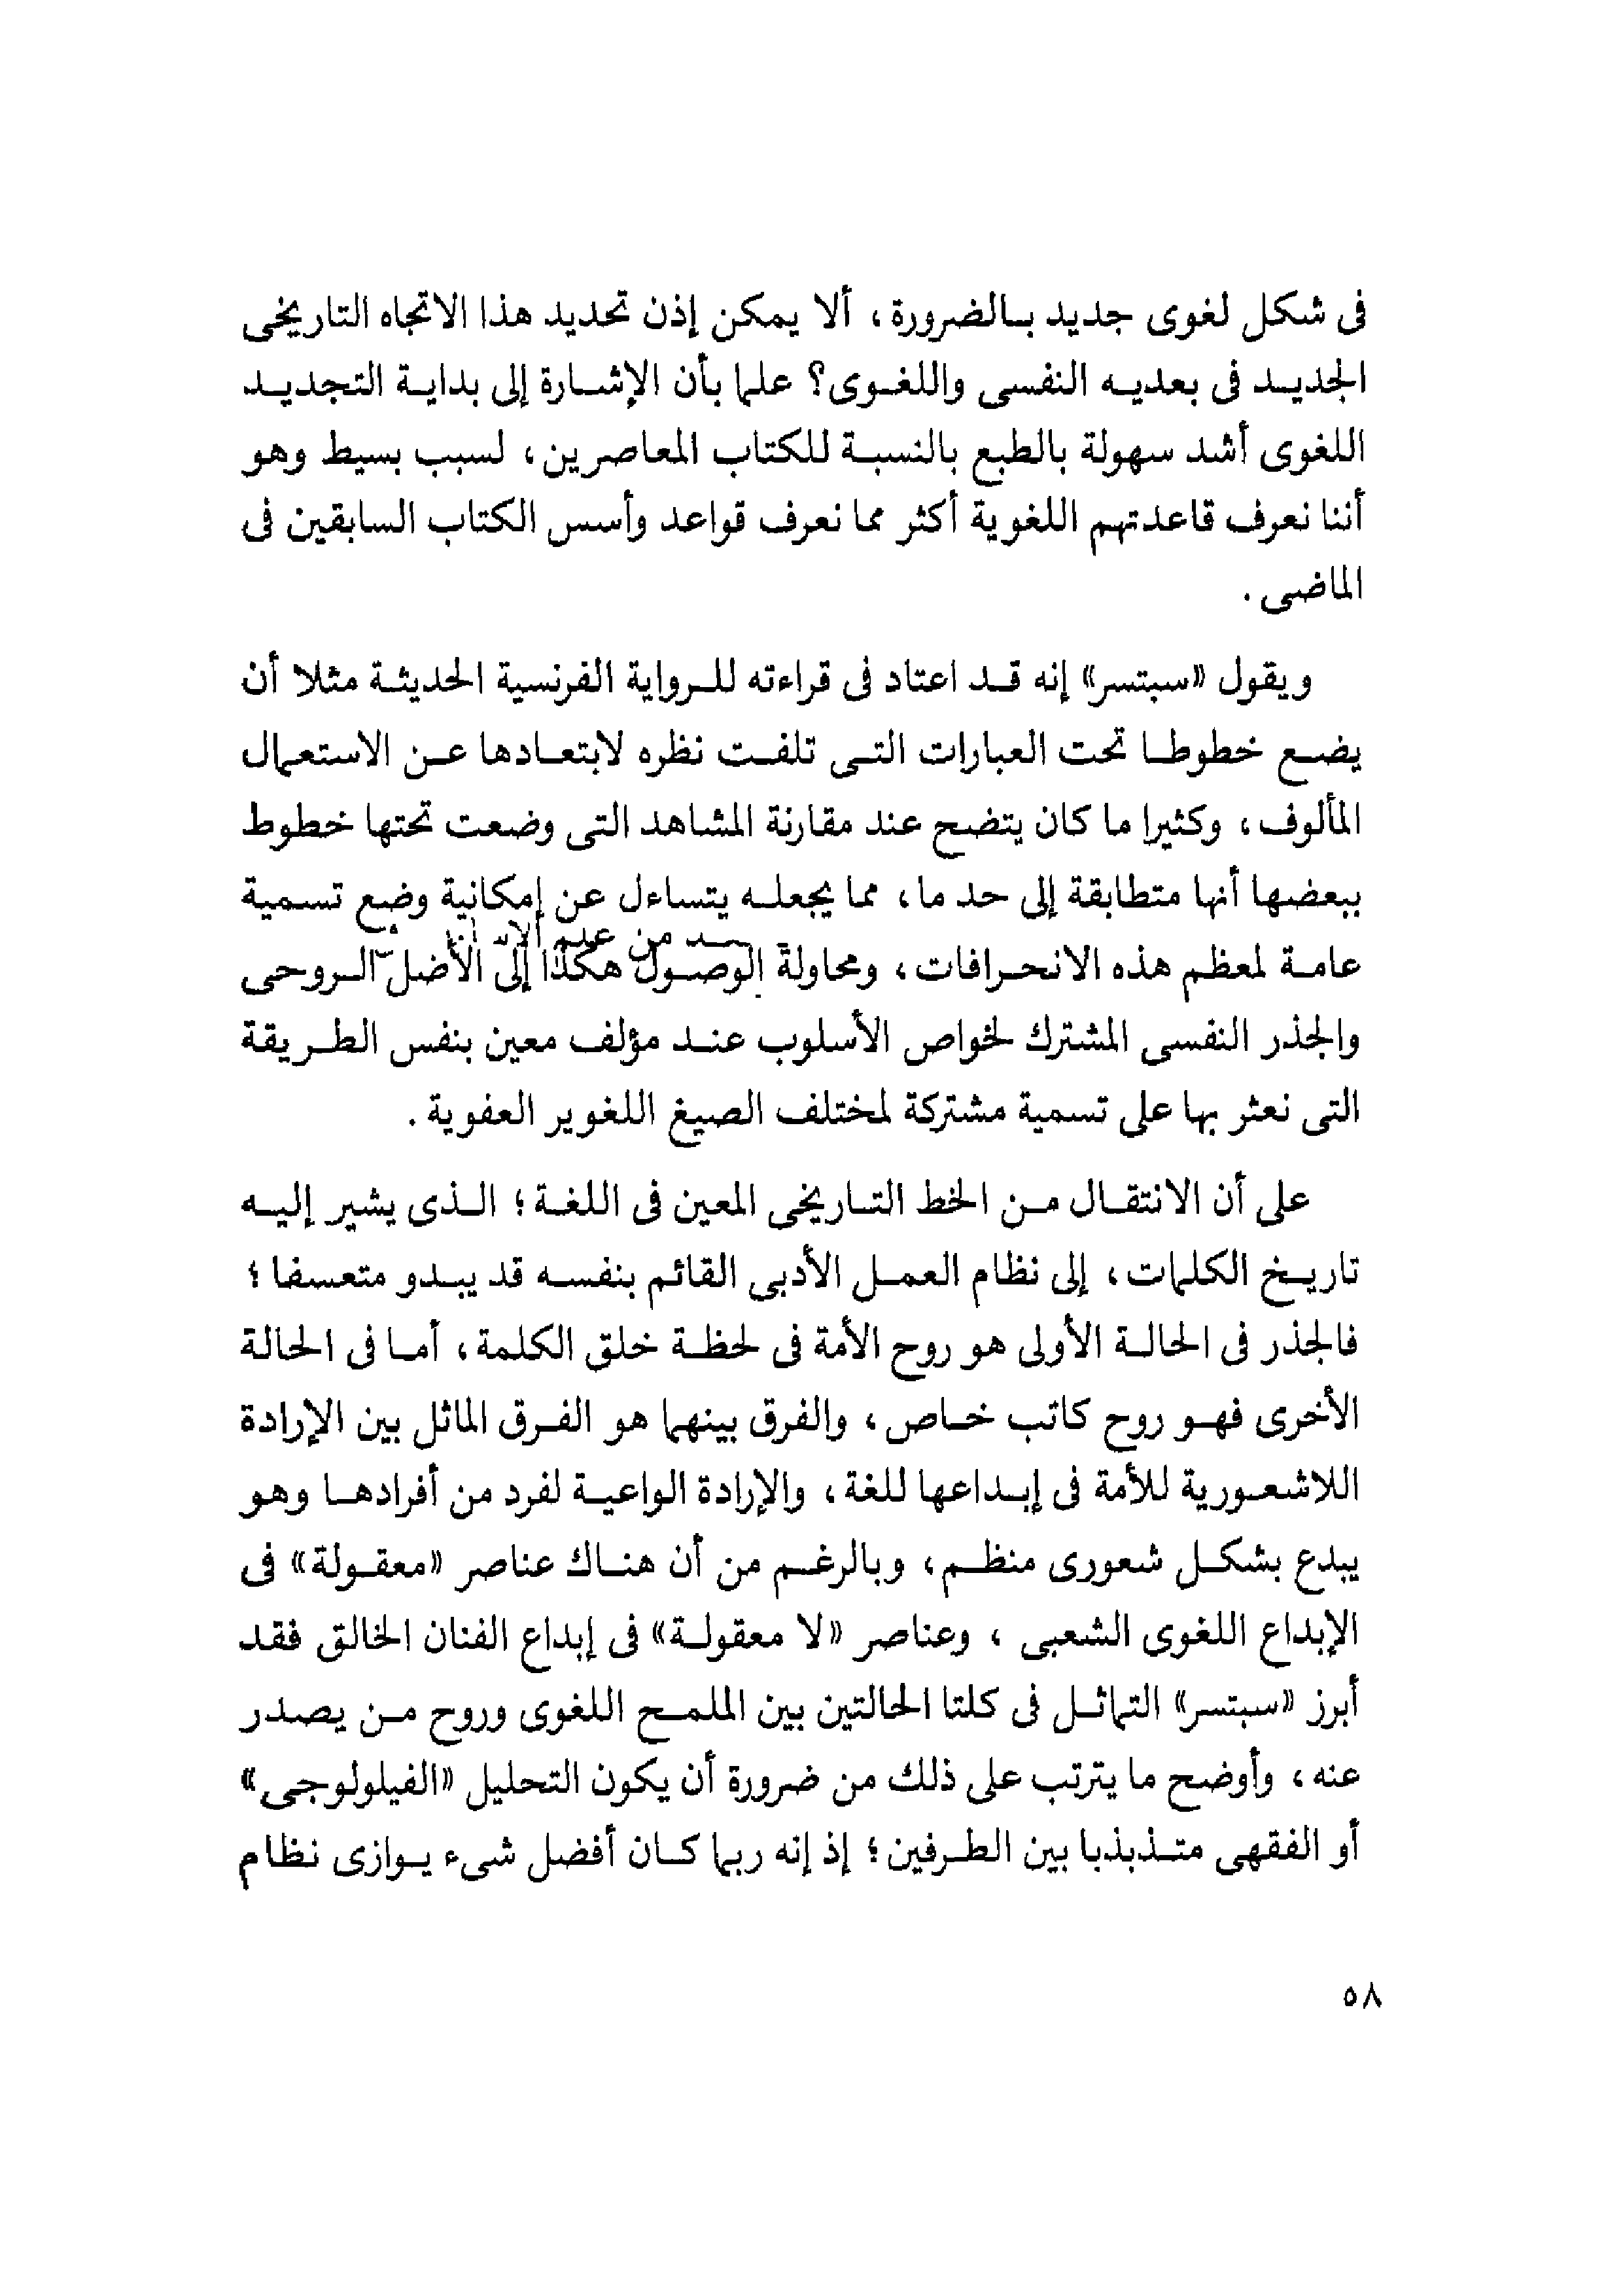 فى شكل لغوى جديد بالضرورة، ألا يمكن إذن تحديد هذا الاتجاه التاريخى
الجديد فى بعديه النفسى واللغوى؟ علما بأن الإشارة إلى بداية التجديد
اللغوى أشد سهولة بالطبع بالنسبة للكتاب المعاصرين، لسبب بسيط وهو
أننا نعرف قاعدتهم اللغوية أكثر مما نعرف قواعد وأسس الكتاب السابقين فى
الماضى.
ويقول «سبتسر» إنه قد اعتاد فى قراءته للرواية الفرنسية الحديثة مثلا أن
يضع خطوطا تحت العبارات التى تلفت نظره لابتعادها عن الاستعمال
المألوف، وكثيرا ما كان يتضح عند مقارنة المشاهد التى وضعت تحتها خطوط
ببعضها أنها متطابقة إلى حد ما، مما يجعله يتساءل عن إمكانية وضع تسمية
عامة لمعظم هذه الانحرافات، ومحاولة الوصول هكذا إلى الأصل الروحى
والجذر النفسى المشترك لخواص الأسلوب عند مؤلف معين بنفس الطريقة
التى نعثر بها على تسمية مشتركة لمختلف الصيغ اللغوير العفوية.
على أن الانتقال من الخط التاريخى المعين فى اللغة؛ الذى يشير إليه
تاريخ الكلمات، إلى نظام العمل الأدبى القائم بنفسه قد يبدو متعسفا؛
فالجذر فى الحالة الأولى هو روح الأمة فى لحظة خلق الكلمة، أما فى الحالة
الأخرى فهو روح كاتب خاص، والفرق بينهما هو الفرق الماثل بين الإرادة
اللاشعورية للأمة فى إبداعها للغة، والإرادة الواعية لفرد من أفرادها وهو
يبدع بشكل شعورى منظم، وبالرغم من أن هناك عناصر «معقولة» فى
الإبداع اللغوى الشعبى، وعناصر «لا معقولة» فى إبداع الفنان الخالق فقد
أبرز «سبتسر» التماثل فى كلتا الحالتين بين الملمح اللغوى وروح من يصدر
عنه، وأوضح ما يترتب على ذلك من ضرورة أن يكون التحليل «الفيلولوجى»
أو الفقهى متذبذبا بين الطرفين؛ إذ إنه ربما كان أفضل شىء يوازى نظام
٥٨